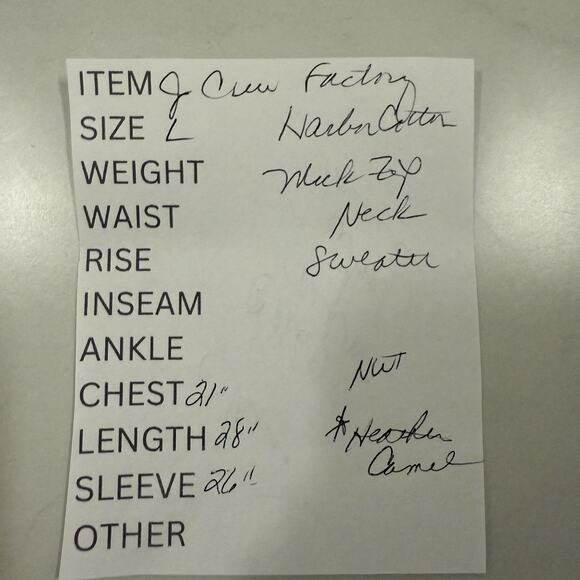 ITEM J Crew Factory
SIZE L Harbor Cotton
WEIGHT Mock Zip
WAIST Neck
RISE Sweater
INSEAM
ANKLE
NWT
CHEST 21"
LENGTH 28" *Heather
Camel
SLEEVE 26"
OTHER